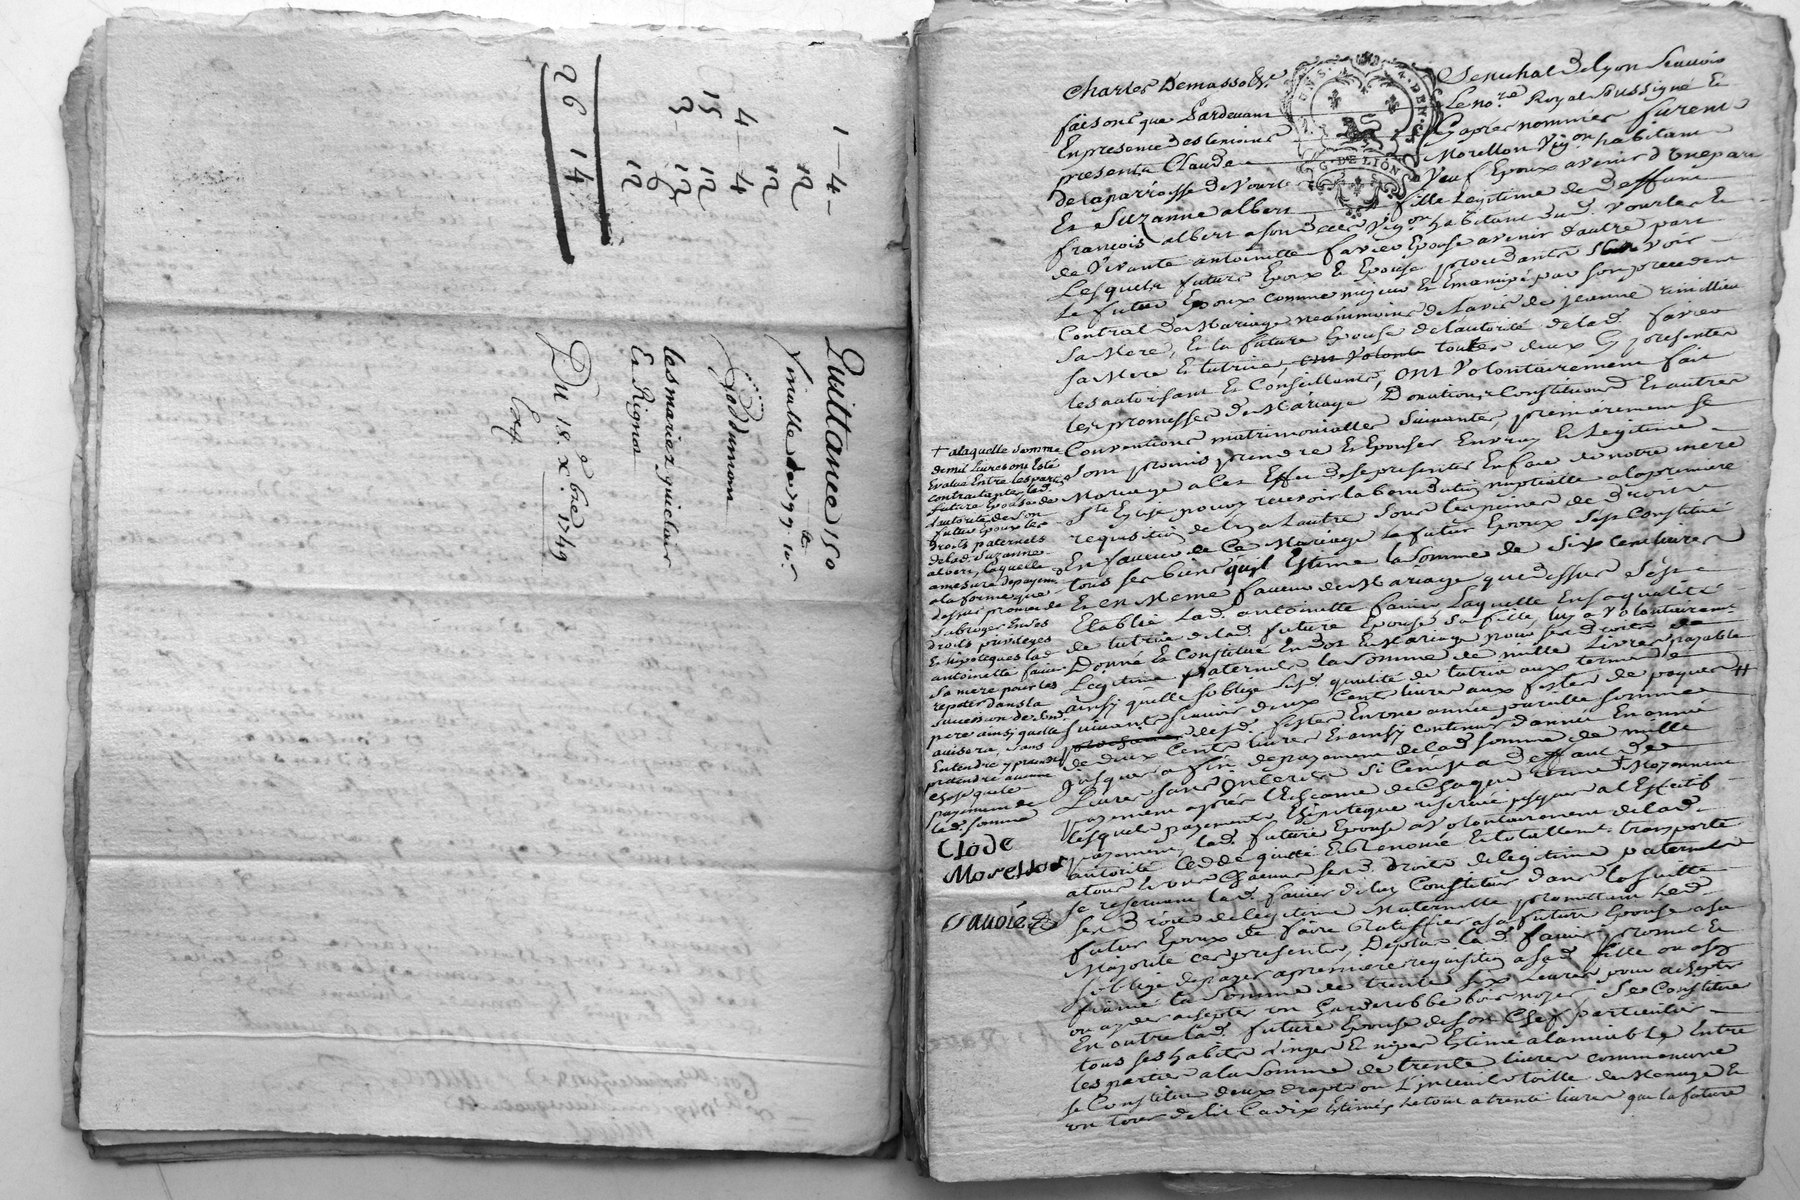 1—4—
12
12
4—4
15 12
3— 13
6
12
26 14
Quittance 150
les mariez quiclair
Et Rignon
Du 18e Xbre 1749
Charles Demasso
Senechal de Lyon Scavoir
faisons que Pardevant
Le nore Royal Soussigné Et
En presence des temoins
Cy apres nommés furent
presents Claude
Morellon Vigon habitant
de la parroisse de Vourles
Veuf Epoux avenir d'Une part
Et Suzanne albert
fille Legitime de deffunt
françois albert a son decès Vigon habitant dud. Vourles Et
de Vivante antoinette favier Epouse avenir d'autre part
Lesquels futurs Epoux Et Epouse procedants Scavoir
Le futur Epoux comme majeur Et Emancipé par son precedent
Contrat de Mariage neanmoins de l'avis de jeanne
Sa Mere, Et la future Epouse de l'autorité de lad. favier
Sa Mere Et tutrice, ont Volont toutes deux Cy presentes
Les autorisant Et Conseillants, ont Volontairement fait
Les promesses de Mariage Donations Constitutions Et autres
Conventions matrimonialles Suivantes, premierement Se
Sont promis prendre Et Epouser En vray Et Legitime
Mariage a Cet Effet de se presenter En face de notre mere
Ste Eglise pour y recevoir la benediction nuptialle a la premiere
requisition de l'un a L'autre Sous les peines de Droits
En faveur de Ce Mariage Le futur Epoux S'est Constitué
tous ses biens qu'il Estime la somme de Six Cent livres
Et en Meme faveur de Mariage que dessus S'est
Etablie Lad. antoinette favier Laquelle En sa qualité
de tutrice de lad. future Epouse Sa fille, luy a Volontairement
Donné Et Constitué En Dot En Mariage pour ses droits de
Legitime paternels la somme de mille Livres payable
ainsy qu'elle S'oblige Esd. qualité de tutrice aux termes
suivants Scavoir deux Cent livres aux festes de paques
desd. festes En une année pareille somme
de deux Cents livres Et ainsy continuer d'année En année
Jusques a fin de payement de lad. somme de mille
Livres sans Interets Si Ce n'est a deffaut de
payement après l'Echeance de Chaque terme + Moyennant
lesquels payements l'hipoteque reservée jusques a l'Effectif
payement, lad. future Epouse a Volontairement de lad.
autorité Cedé quitté Et Renoncé Et totallement transporté
a tous Et uns Chacuns sesd. Droits de legitime paternels
se reservant lad. favier de luy Constituer dans la suitte
ses droits de legitime Maternelle promettant Led.
futur Epoux de faire Ratiffier a sa future Epouse a sa
Majorité Ces presentes, De plus lad. favier promet Et
s'oblige de payer a premiere requisition a sad. fille ou aud.
la somme de trente six Livres pour acheter
ou ayder acheter un Garderobbe bois noyer, Se Constitue
En outre lad. future Epouse de son Chef particulier
tous ses habits linges Et nipes Estimé a l'amiable Entre
les parties a la somme de trente livres comme encore
se Constitue deux draps ou Linceuls toille de Menage Et
un tour de lit Cadix Estimés le tout a trente livres que la future
+ a laquelle somme
de mil Livres ont Esté
Evalué Entre les parties
contractantes lad.
future Epouse de
l'autorité de son
futur Epoux les
Droits paternels
de lad. Suzanne
albert, laquelle
a mesure de payement
a la forme que
dessus promet de
subroger En ses
droits privileges
Et hipoteques lad.
antoinette favier
Sa mere pour les
repeter dans la
succession de sond.
pere ainsy quelle
avisera, sans
Entendre y pouvoir
pretendre aucune
chose que le
payement de
lad. somme
Clode
Morellon